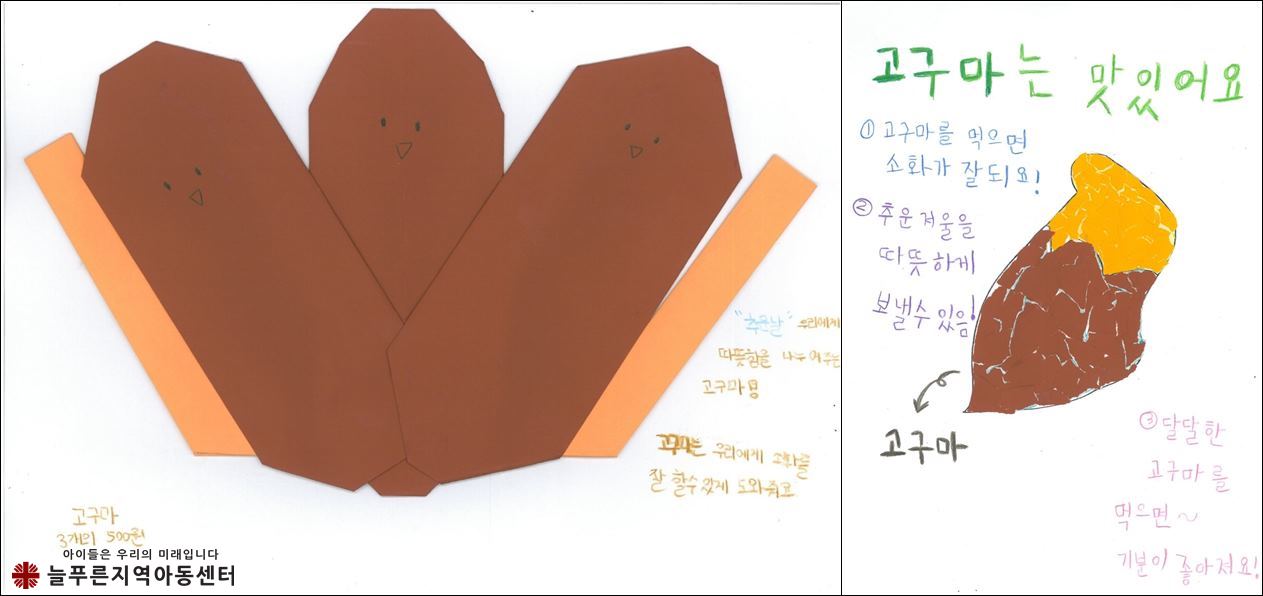 "추운날" 우리에게
따뜻함을 나누어주는
고구마
고구마는 우리에게 소화를
잘 할수있게 도와줘요
고구마
3개의 500원
아이들은 우리의 미래입니다
늘푸른지역아동센터
고구마는 맛있어요
① 고구마를 먹으면
소화가 잘되요!
② 추운겨울을
따뜻하게
보낼수있음!
고구마
③ 달달한
고구마를
먹으면~
기분이 좋아져요!